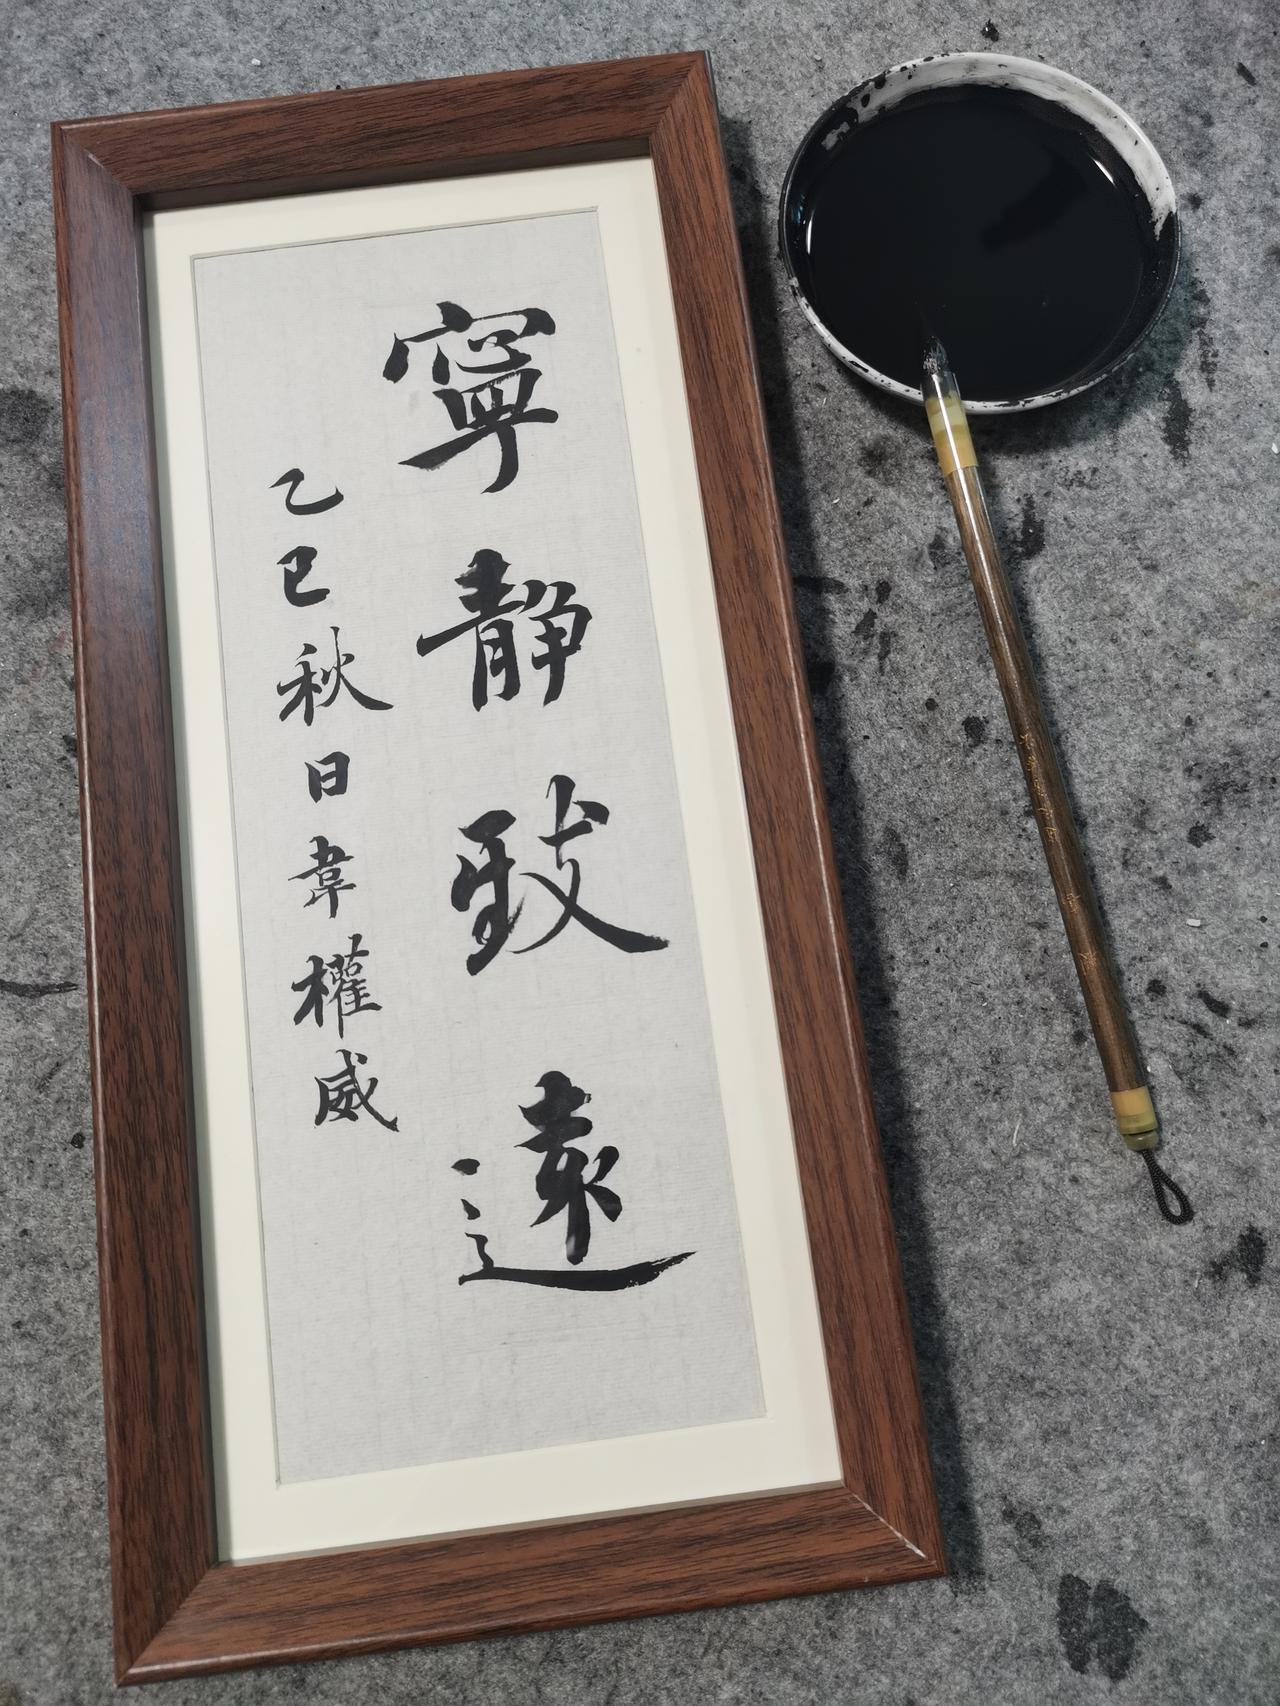 寧静致遠
乙巳秋日韋權威